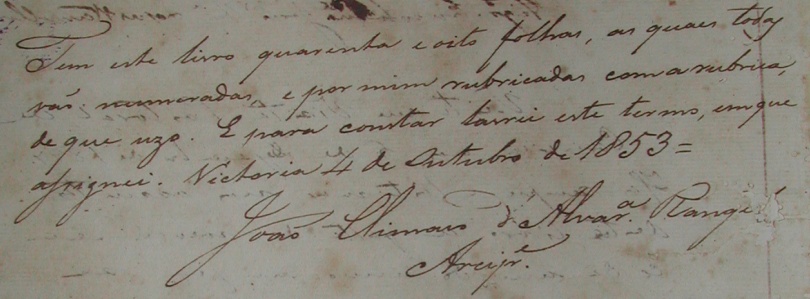 Tem este livro quarenta e oito folhas, as quaes todas
vaõ numeradas, e por mim rubricadas com a rubrica,
de que uzo. E para constar lavrei este termo, em que
assignei. Victoria 4 de Outubro de 1853=
Joaõ Climaco d'Alvar.ª Rangel
Arcipr.e